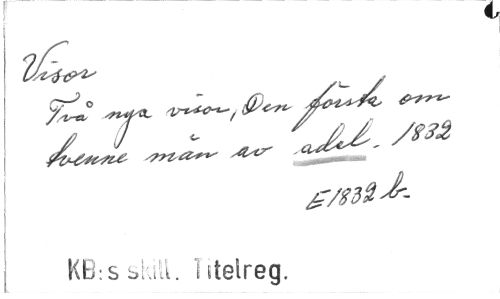 Visor
Två nya visor, Den första om
tvenne män av adel. 1832
E1832 b.
KB:s skill. Titelreg.